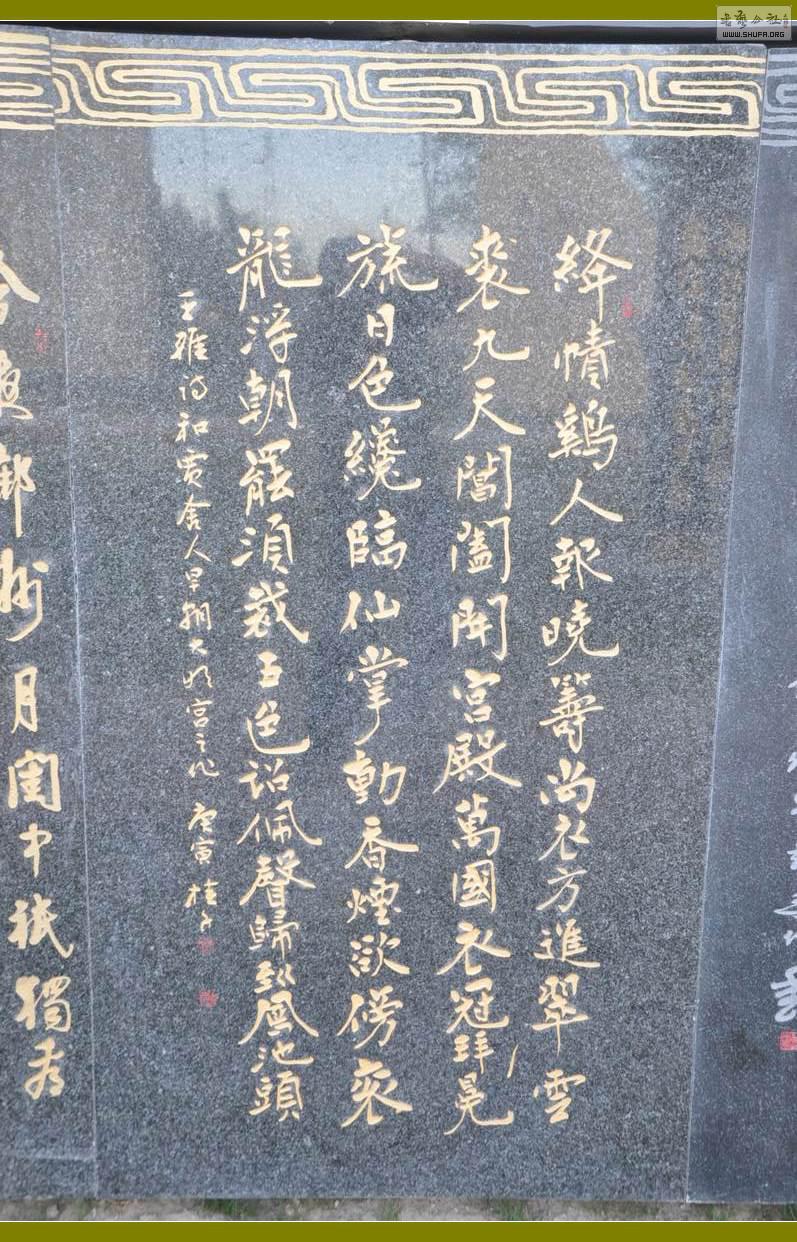 絳幘鷄人報曉籌尚衣方進翠雲
裘九天閶闔開宮殿萬國衣冠拜冕
旒日色纔臨仙掌動香煙欲傍衮
龍浮朝罷須裁五色詔佩聲歸到鳳池頭
王維詩和賈舍人早朝大明宮之作 庚寅 桂
今夜鄜州月閨中祇獨看
WWW.SHUFA.ORG